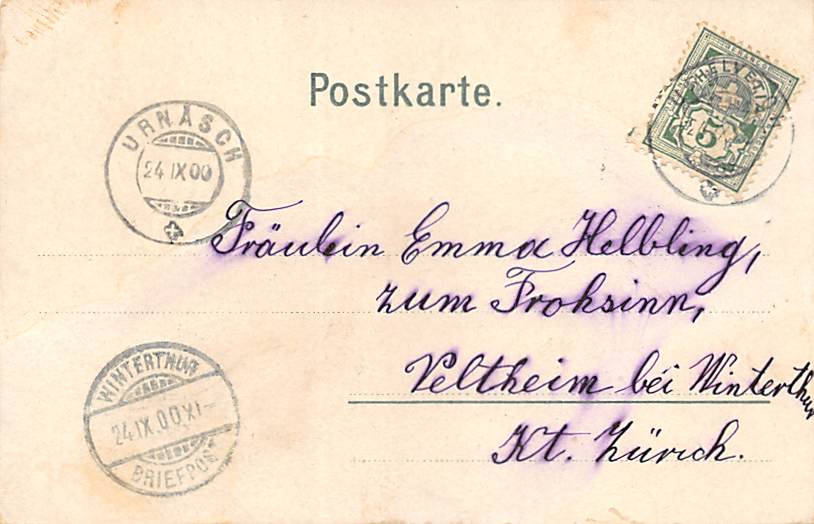 Postkarte.
HELVETIA
5
URNÄSCH
24 IX 00
Fräulein Emma Helbling,
zum Frohsinn,
Veltheim bei Winterthur
Kt. Zürich.
WINTERTHUR
24.IX.00.XI-
BRIEFPOST